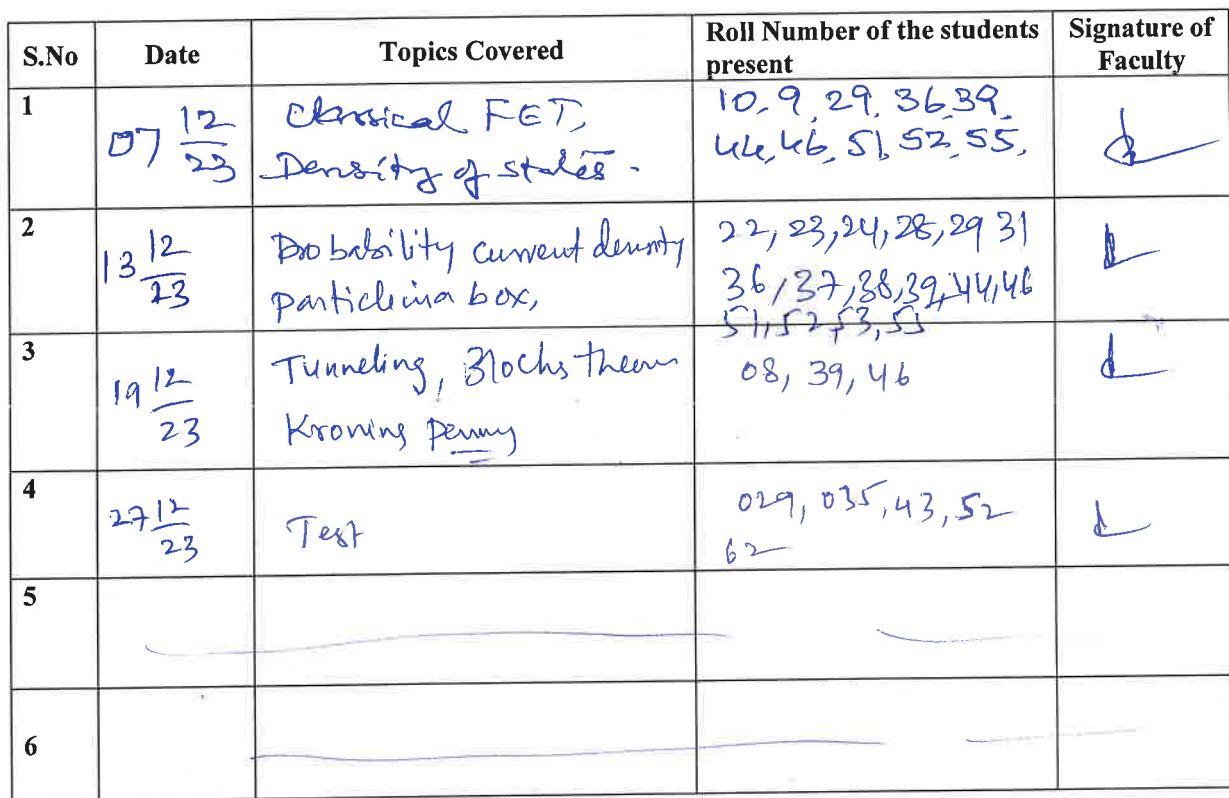 S.No Date Topics Covered Roll Number of the students present Signature of Faculty
1 07 12/23 Classical FET, 10, 9, 29, 36, 39,
Density of states. 44, 46, 51, 52, 55,
2 13 12/23 Probability current density 22, 23, 24, 28, 29 31
particle in a box, 36, 37, 38, 39, 44, 46
51, 52, 53, 55
3 19 12/23 Tunneling, Blochs theorm 08, 39, 46
Kroning penny
4 27 12/23 Test 029, 035, 43, 52
62
5
6